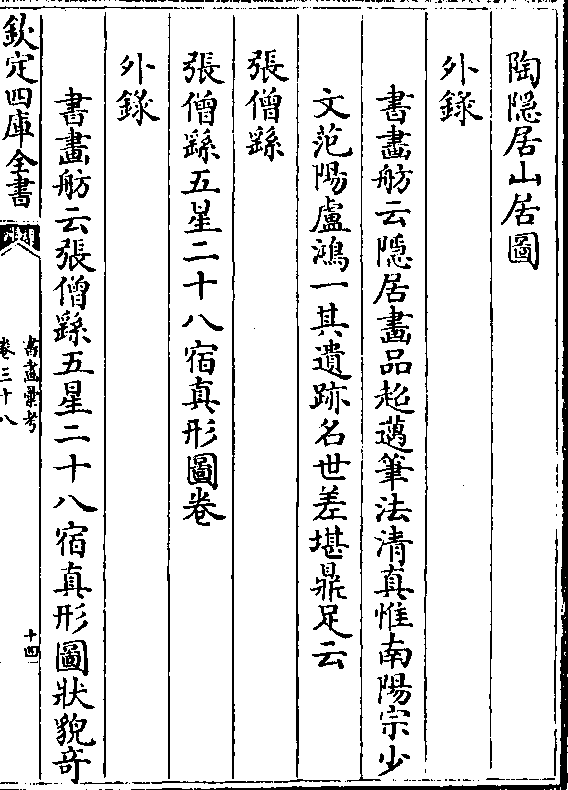 陶隠居山居圖
外錄
書畫舫云隠居畫品超邁筆法清真惟南陽宗少
文范陽盧鴻一其遺跡名世差堪鼎足云
張僧繇
張僧繇五星二十八宿真形圖卷
外錄
書畫舫云張僧繇五星二十八宿真形圖狀貌竒
欽定四庫全書
書畫彚考
卷三十八
十四